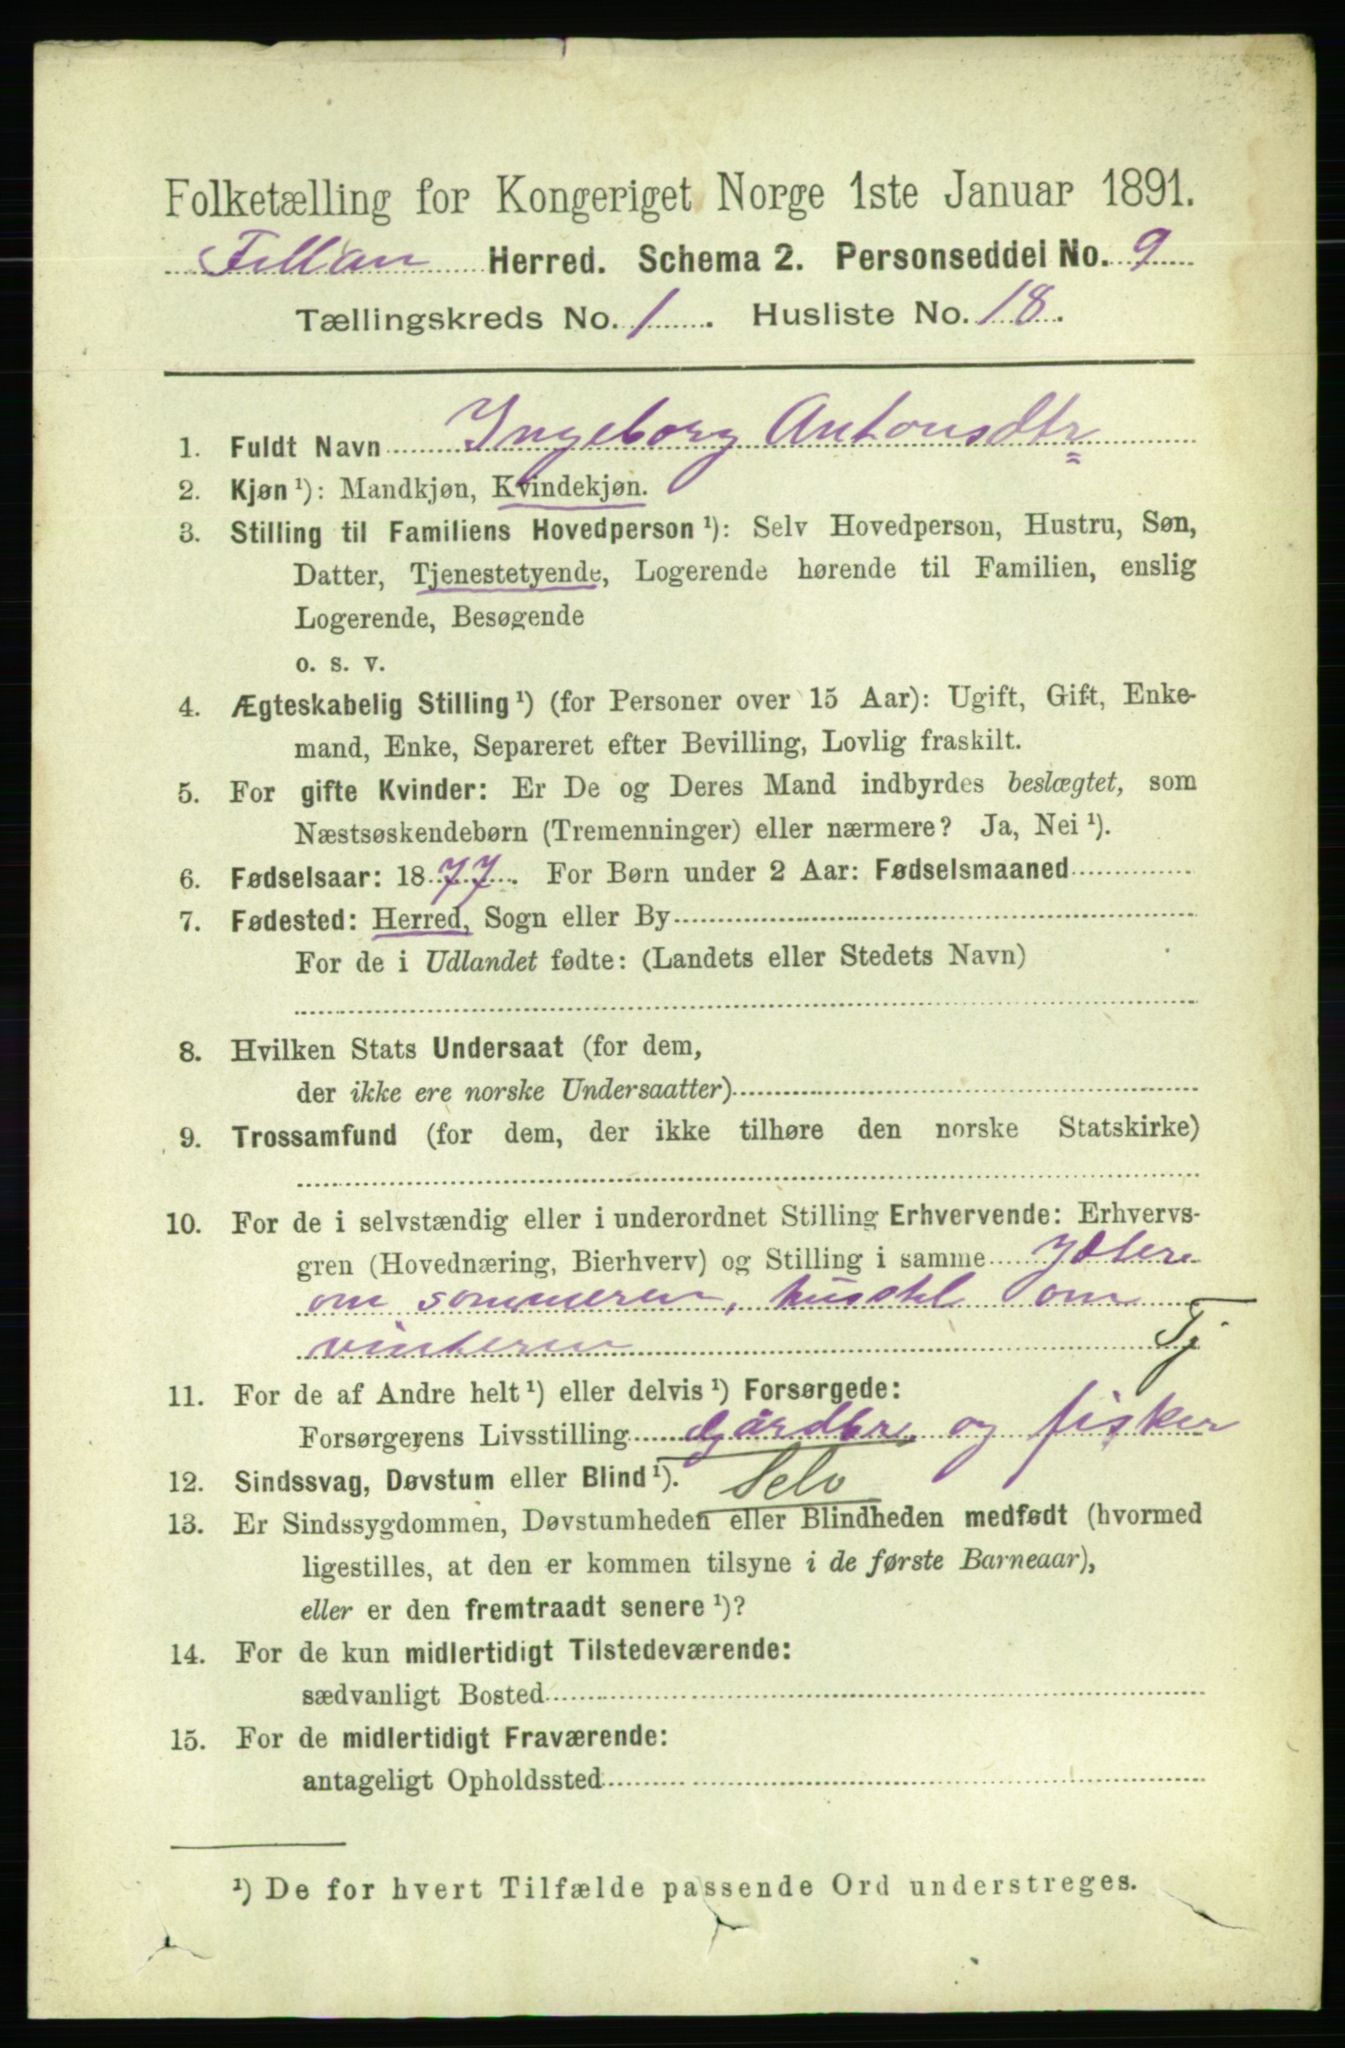 Folketælling for Kongeriget Norge 1ste Januar 1891.
Fillan Herred. Schema 2. Personseddel No. 9
Tællingskreds No. 1. Husliste No. 18.
1. Fuldt Navn Ingeborg Antonsdtr
2. Kjøn ¹): Mandkjøn, Kvindekjøn.
3. Stilling til Familiens Hovedperson ¹): Selv Hovedperson, Hustru, Søn,
Datter, Tjenestetyende, Logerende hørende til Familien, enslig
Logerende, Besøgende
o. s. v.
4. Ægteskabelig Stilling ¹) (for Personer over 15 Aar): Ugift, Gift, Enke-
mand, Enke, Separeret efter Bevilling, Lovlig fraskilt.
5. For gifte Kvinder: Er De og Deres Mand indbyrdes beslægtet, som
Næstsøskendebørn (Tremenninger) eller nærmere? Ja, Nei ¹).
6. Fødselsaar: 1877. For Børn under 2 Aar: Fødselsmaaned
7. Fødested: Herred, Sogn eller By
For de i Udlandet fødte: (Landets eller Stedets Navn)
8. Hvilken Stats Undersaat (for dem,
der ikke ere norske Undersaatter)
9. Trossamfund (for dem, der ikke tilhøre den norske Statskirke)
10. For de i selvstændig eller i underordnet Stilling Erhvervende: Erhvervs-
gren (Hovednæring, Bierhverv) og Stilling i samme
om sommeren, husstel om
vinteren Tj
11. For de af Andre helt ¹) eller delvis ¹) Forsørgede:
Forsørgerens Livsstilling gårdbr. og fisker
12. Sindssvag, Døvstum eller Blind ¹). Selv
13. Er Sindssygdommen, Døvstumheden eller Blindheden medfødt (hvormed
ligestilles, at den er kommen tilsyne i de første Barneaar),
eller er den fremtraadt senere ¹)?
14. For de kun midlertidigt Tilstedeværende:
sædvanligt Bosted
15. For de midlertidigt Fraværende:
antageligt Opholdssted
¹) De for hvert Tilfælde passende Ord understreges.